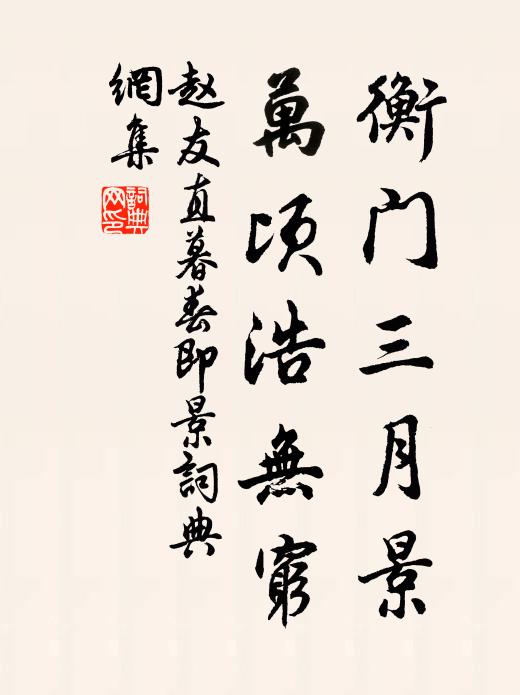 衡门三月景
萬頃浩無窮
赵友直暮春即景詞典
網集
詞典
网印